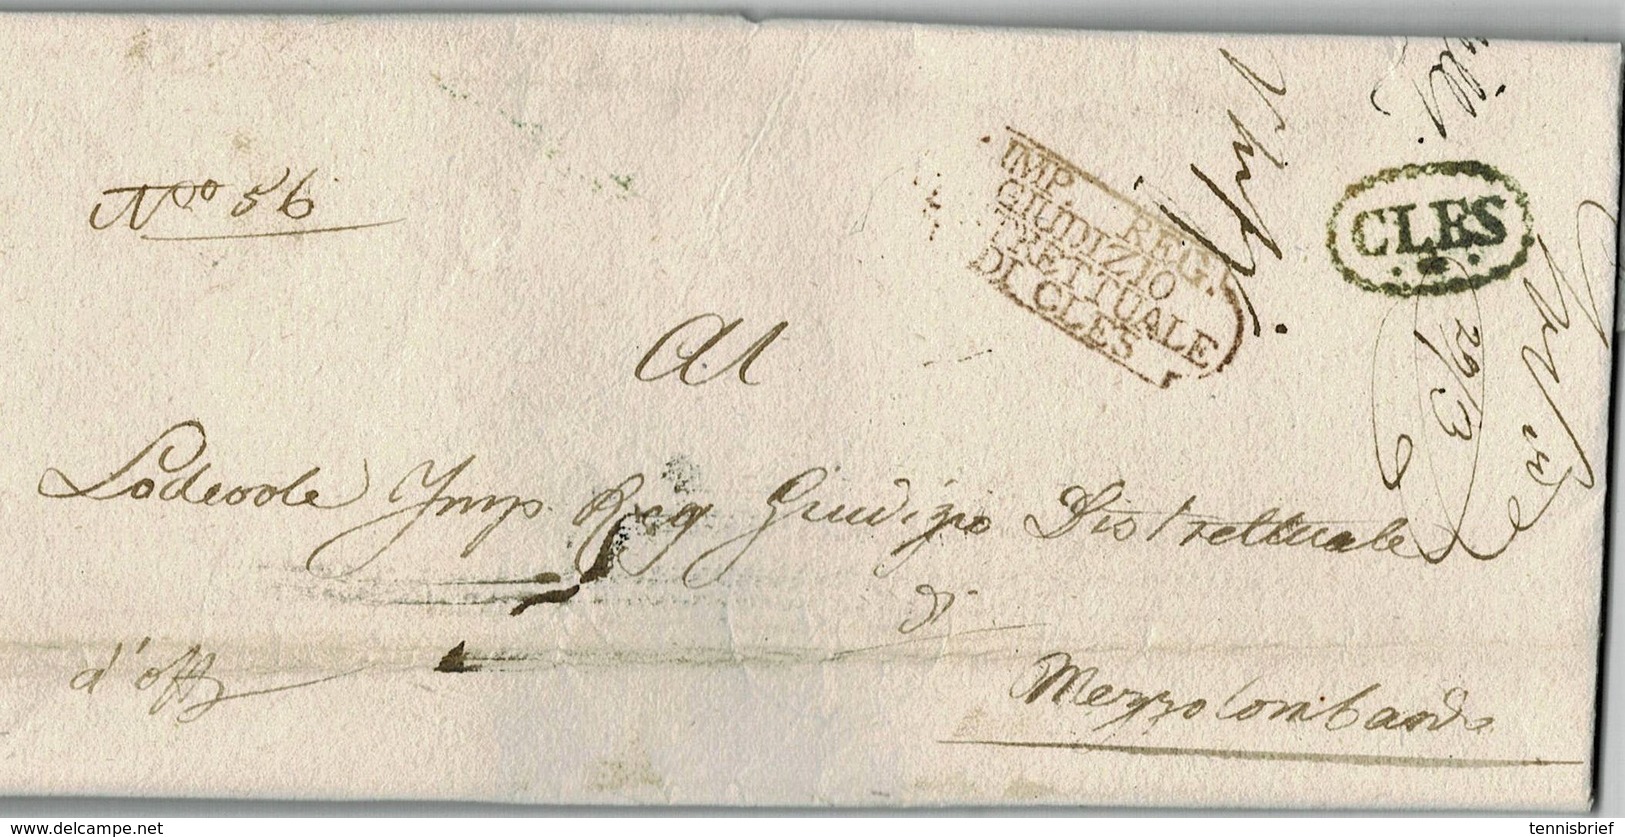 Nro 56
IMP. REG.
GIUDIZIO
TRETTUALE
DI CLES
CLES
29/3
Al
Lodevole Imp. Reg Giudizio Distrettuale
di
d'off
Mezzolombardo
delcampe.net
tennisbrief